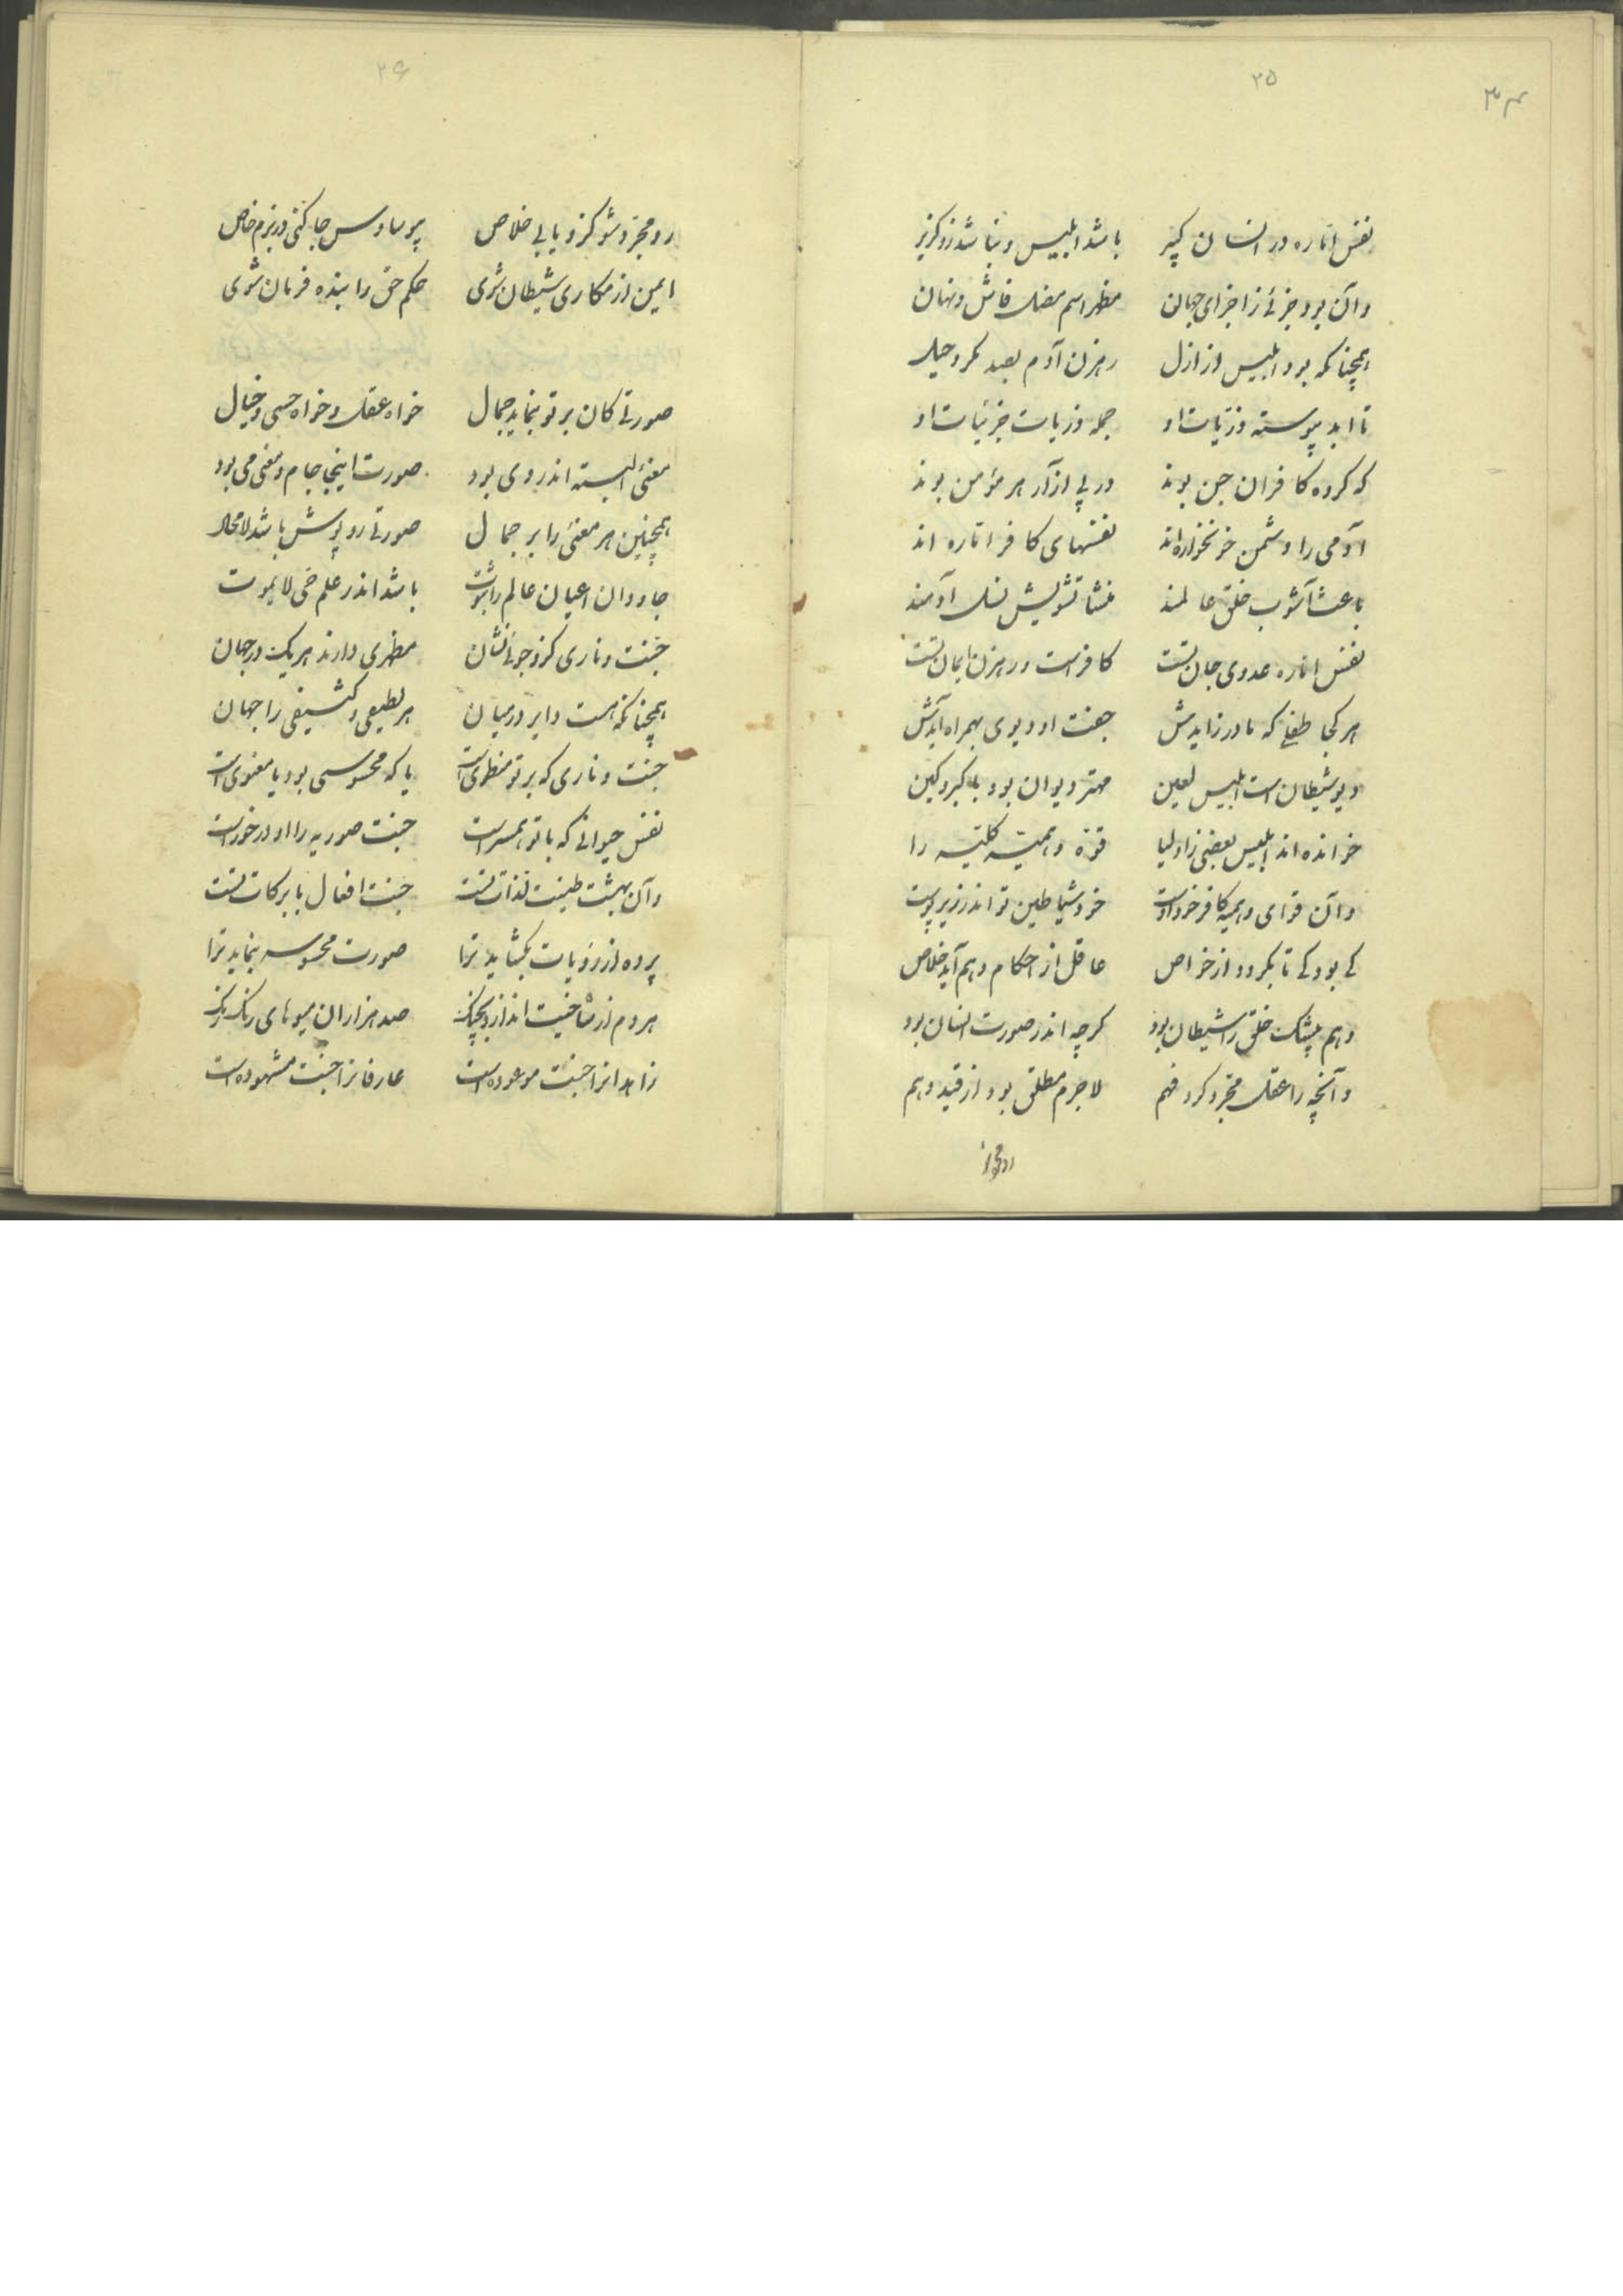 ۲۵
نفس اماره در انسان کبیر باشد ابلیس و نباشد زو گزیر
وآن بود جزئی ز اجزای جهان مظهر اسم مضل فاش و نهان
همچنانکه بود ابلیس از ازل رهزن آدم بصد مکر و حیل
تا ابد پیوسته ذریات او جمله ذریات جزئیات او
که کروه کافران جن بوند در پی ازار هر مؤمن بوند
آدمی را دشمن خونخواره‌اند نفسهای کافر اماره اند
باعث آشوب خلق عالمند منشا تشویش نسل آدمند
نفس اماره عدوی جان تست کافرست و رهزن ایمان تست
هر کجا طفلی که مادر زایدش جفت او دیوی بهمراه آیدش
دیو شیطان است ابلیس لعین مهتر دیوان بود با کبر و کین
خوانده اند ابلیس بعضی ز اولیا قوّة وهمیّه کلیّه را
وآن قوای وهمیه کافر خود اوست خود شیاطین تو اندر زیر پوست
کی بود کی تا بکردد از خواص عاقل از احکام وهم آید خلاص
وهم بیشک خلق را شیطان بود کرچه اندر صورت انسان بود
وآنچه را عقل مجرد کرد فهم لاجرم مطلق بود از قید وهم
رو مجرد
۲۶
رو مجرّد شو کزو یابی خلاص بی وساوس جا کنی در بزم خاص
ایمن از مکاری شیطان شوی حکم حق را بنده فرمان شوی
صورتی کان بر تو بنماید جمال خواه عقل و خواه حسی و خیال
معنی البته اندر وی بود صورت اینجا جام و معنی می بود
همچنین هر معنی را بر جمال صورتی روپوش باشد لامحال
جاودان اعیان عالم را ثبوت باشد اندر علم حی لایموت
جنت و ناری کزو جوئی نشان مظهری دارند هر یک در جهان
همچنانکه هست دایر در میان هر لطیفی و کثیفی را جهان
جنت و ناری که بر تو منطوی است یا که محسوسی بود یا معنوی است
نفس حیوانی که با تو همسر است جنت صوریه را او در خور است
وآن بهشت طینت لذات تست جنت افعال با برکات تست
پرده از رؤیات بکشاید ترا صورت محسوسه بنماید ترا
هردم از شاخیت اندازد بچنک صد هزاران میوهای رنک رنک
زاهدانرا جنت موعوده است عارفانرا جنت مشهوده است